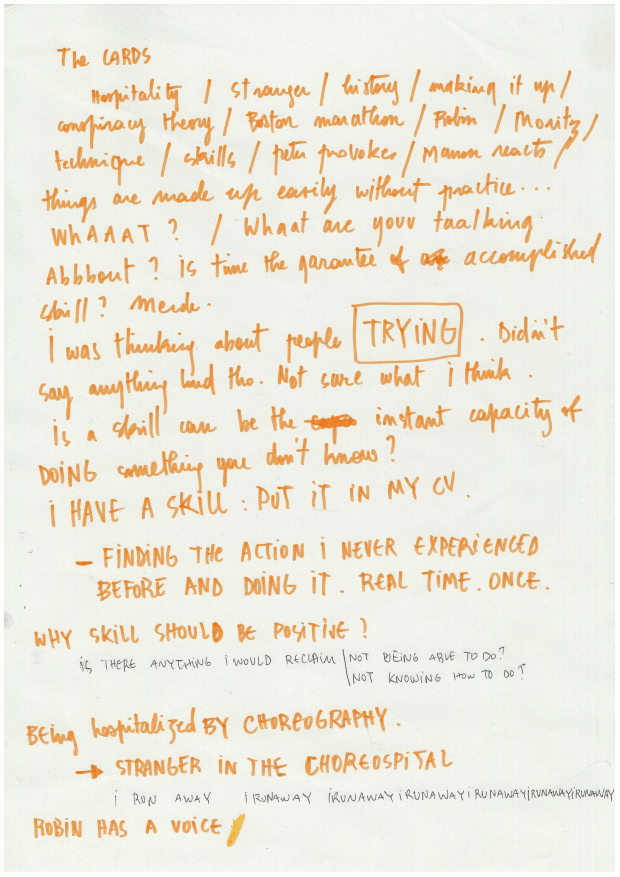 The CARDS
Hospitality / stranger / history / making it up /
conspiracy theory / Boston marathon / Robin / Moritz /
technique / skills / peter provokes / Manon reacts /
things are made up easily without practice...
WhAAAT ? / Whaat are youu taalking
Abbbout ? is time the garantee of accomplished
skill ? Merde.
i was thinking about people TRYING . Didn't
say anything loud tho. Not sure what i think .
is a skill can be the instant capacity of
DOING something you don't know ?
i HAVE A SKiLL : PUT iT iN MY CV.
– FiNDiNG THE ACTiON i NEVER EXPERiENCED
BEFORE AND DOiNG iT . REAL TiME . ONCE .
WHY SKiLL SHOULD BE POSiTiVE ?
iS THERE ANYTHiNG i WOULD RECLAiM | NOT BEiNG ABLE TO DO ?
NOT KNOWiNG HOW TO DO ?
BEing hospitalized BY CHOREOGRAPHY .
→ STRANGER iN THE CHOREOSPiTAL
i RUN AWAY i RUNAWAY iRUNAWAY iRUNAWAY i RUNAWAY iRUNAWAY iRUNAWAY
ROBiN HAS A VOiCE /